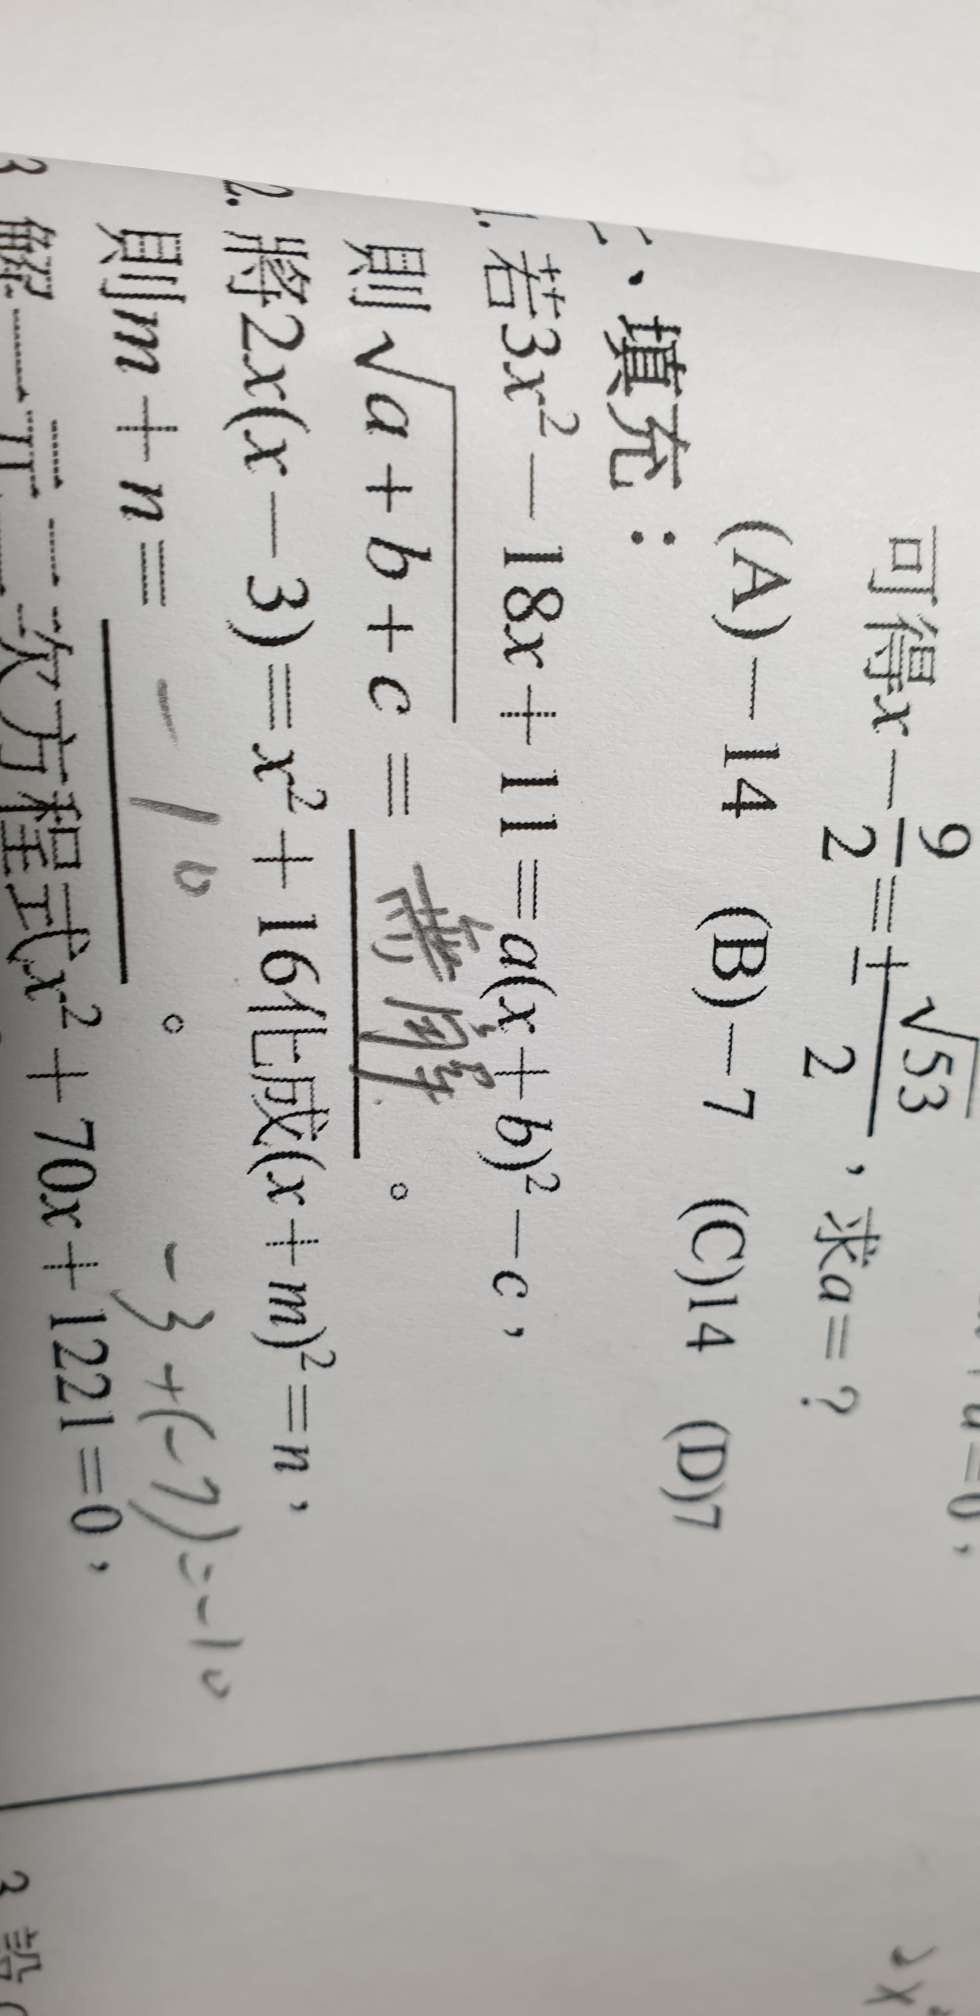 a=0，
可得x-9/2=±√53/2，求a=？
(A)-14 (B)-7 (C)14 (D)7
二、填充：
1. 若3x²-18x+11=a(x+b)²-c，
則√(a+b+c)= 無解。
2. 將2x(x-3)=x²+16化成(x+m)²=n，
則m+n= -10。 -3+(-7)=-10
3 解一元二次方程式x²+70x+1221=0，
3